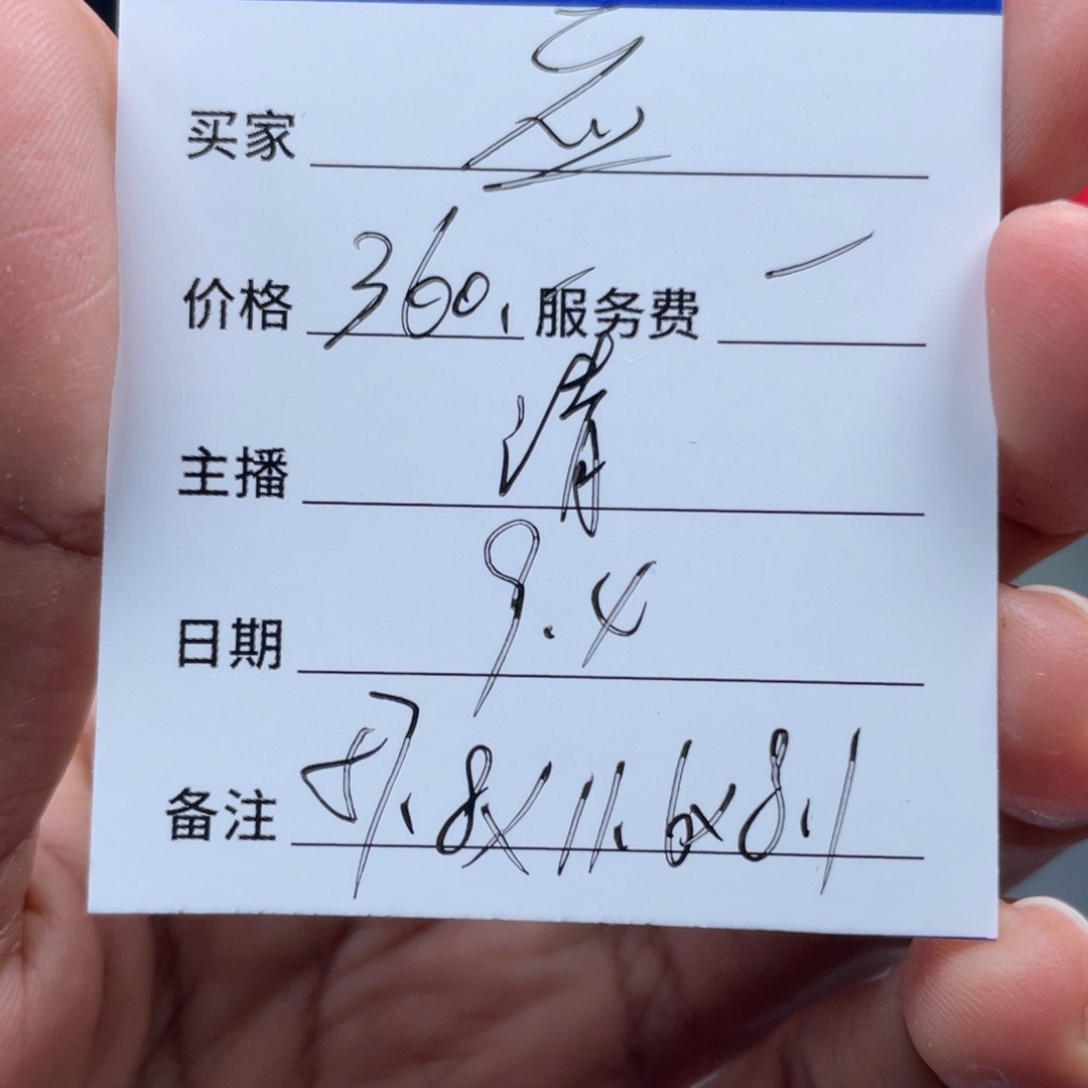 买家
价格 360. 服务费 一
主播 清
日期 9.4
备注 47.8x11.6x8.1